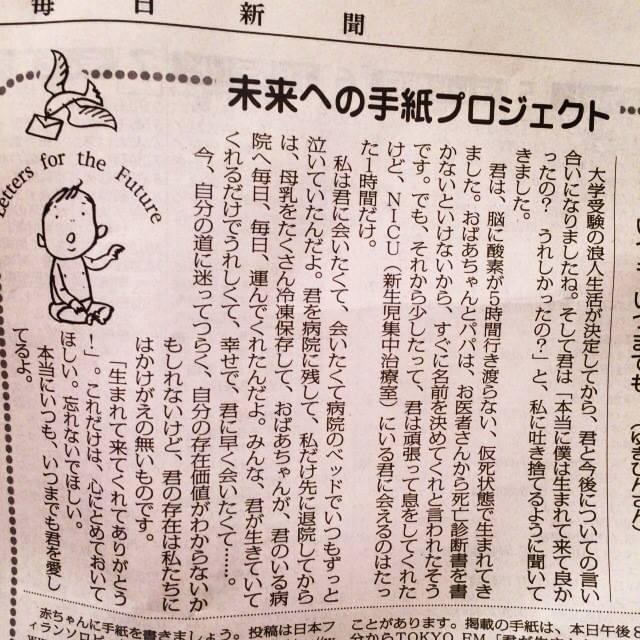 毎日新聞
いつまでも (ゆきひんこん)
未来への手紙プロジェクト
Letters for the Future
大学受験の浪人生活が決定してから、君と今後についての言い
合いになりましたね。そして君は「本当に僕は生まれて来て良か
ったの? うれしかったの?」と、私に吐き捨てるように聞いて
きました。
君は、脳に酸素が5時間行き渡らない、仮死状態で生まれてき
ました。おばあちゃんとパパは、お医者さんから死亡診断書を書
かないといけないから、すぐに名前を決めてくれと言われたそう
です。でも、それから少したって、君は頑張って息をしてくれた
けど、NICU(新生児集中治療室)にいる君に会えるのはたっ
た1時間だけ。
私は君に会いたくて、会いたくて病院のベッドでいつもずっと
泣いていたんだよ。君を病院に残して、私だけ先に退院してから
は、母乳をたくさん冷凍保存して、おばあちゃんが、君のいる病
院へ毎日、毎日、運んでくれたんだよ。みんな、君が生きていて
くれるだけでうれしくて、幸せで、君に早く会いたくて……。
今、自分の道に迷ってつらく、自分の存在価値がわからないか
もしれないけど、君の存在は私たちに
はかけがえの無いものです。
「生まれて来てくれてありがとう
!」。これだけは、心にとめておいて
ほしい。忘れないでほしい。
本当にいつも、いつまでも君を愛し
てるよ。
赤ちゃんに手紙を書きましょう。投稿は日本フ
ィランソロピ
ことがあります。掲載の手紙は、本日午後
分からTOKYO FM「君が